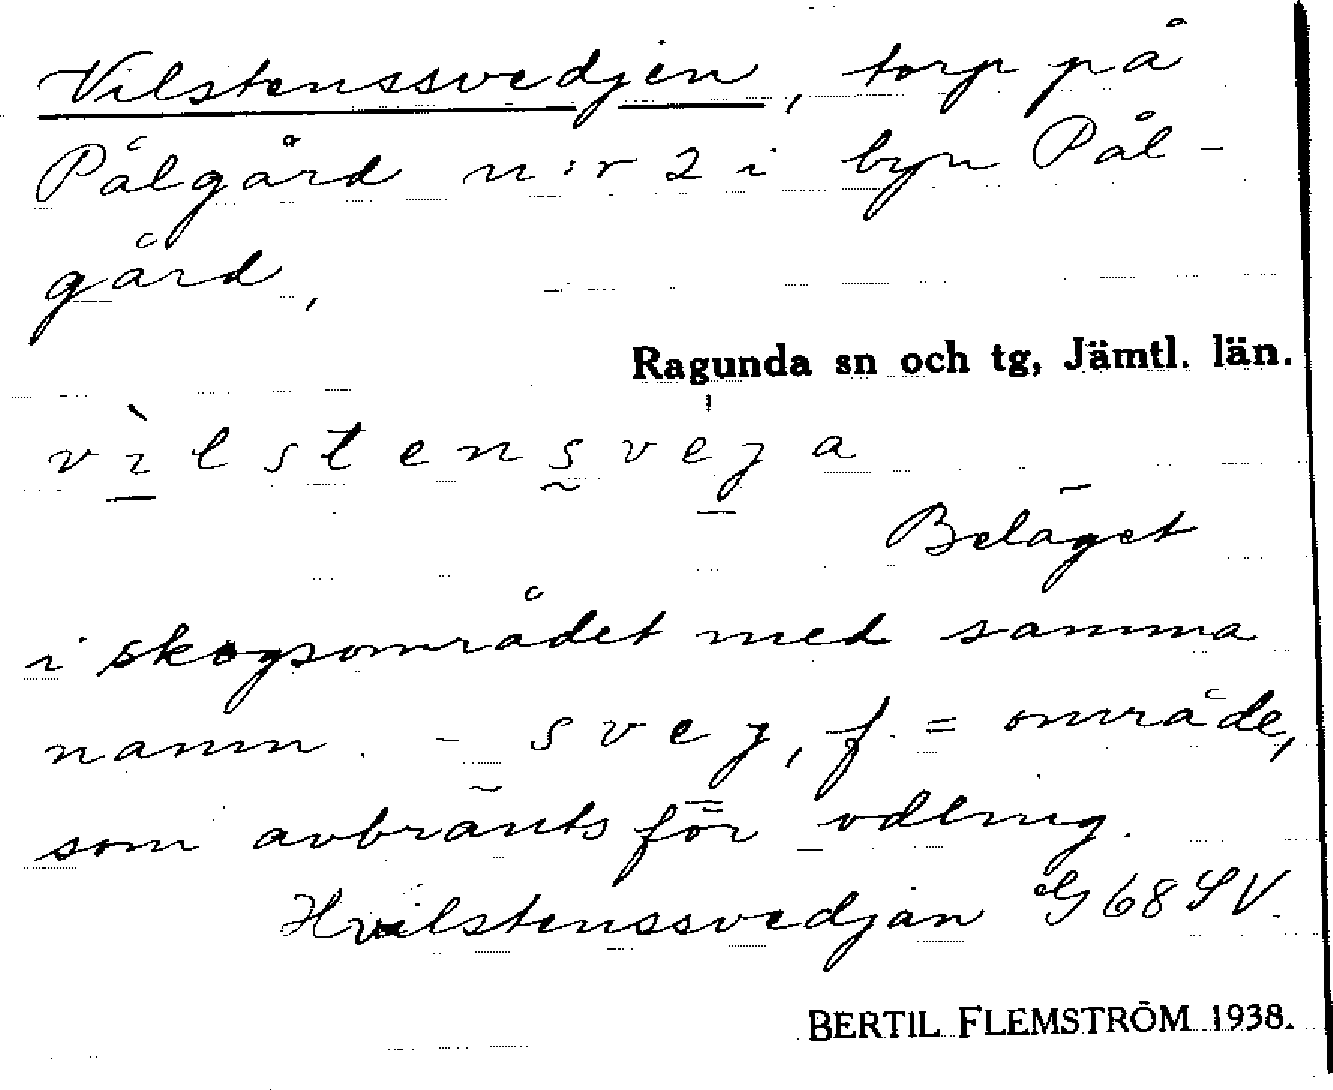 Vilstenssvedjen, torp på
Pålgård n:r 2 i byn Pål-
gård,
Ragunda sn och tg, Jämtl. län.
vìlstensveja
Beläget
i skogsområdet med samma
namn. - svej, f. = område,
som avbränts för odling.
Hvilstenssvedjan G 68 SV.
BERTIL FLEMSTRÖM 1938.